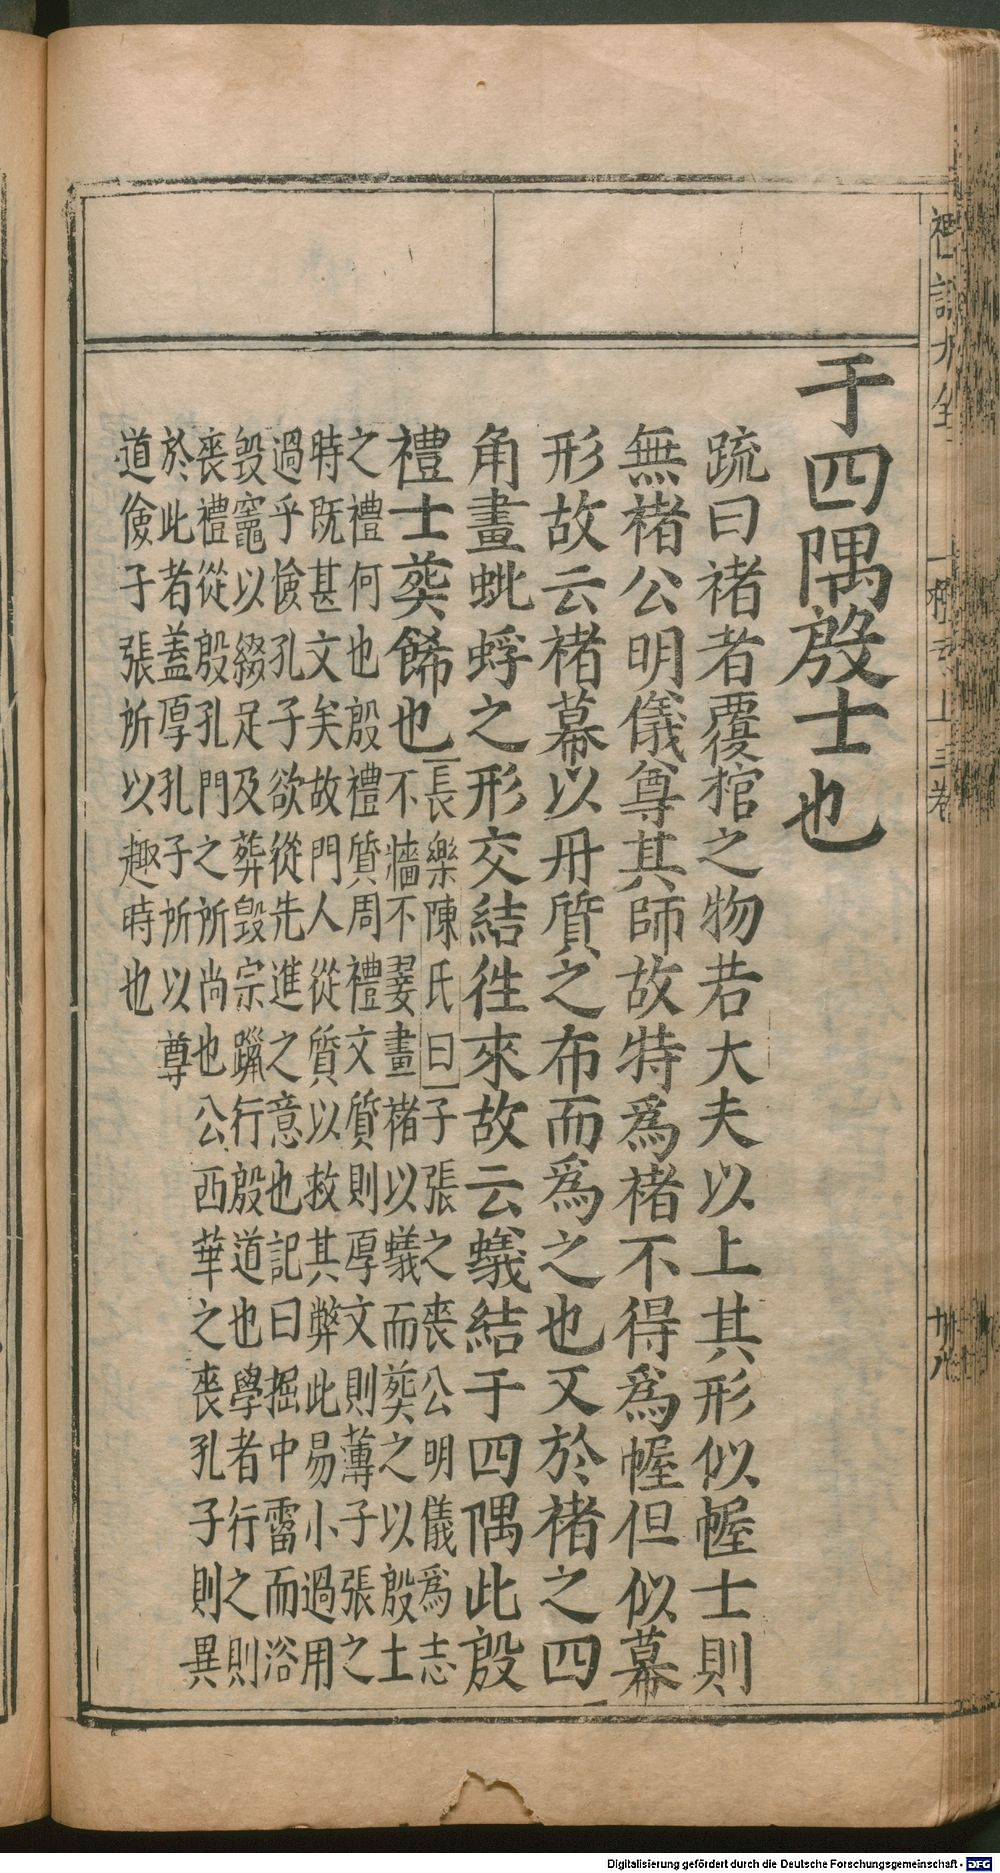 于四隅殷士也
疏曰褚者覆棺之物若大夫以上其形似幄士則
無褚公明儀尊其師故特爲褚不得爲幄但似幕
形故云褚幕以丹質之布而爲之也又於褚之四
角畫蚍蜉之形交結徃來故云蟻結于四隅此殷
禮士葬餙也
長樂陳氏曰子張之喪公明儀爲志
不牆不翣畫褚以蟻而葬之以殷士
之禮何也殷禮質周禮文質則厚文則薄子張之
時既甚文矣故門人從質以救其弊此易小過用
過乎儉孔子欲從先進之意也記曰掘中霤而浴
毀竈以綴足及葬毀宗躐行殷道也學者行之則
喪禮從殷孔門之所尚也公西華之喪孔子則異
於此者蓋厚孔子所以尊
道儉子張所以趣時也
禮記大全
檀弓上三卷
Digitalisierung gefördert durch die Deutsche Forschungsgemeinschaft - DFG